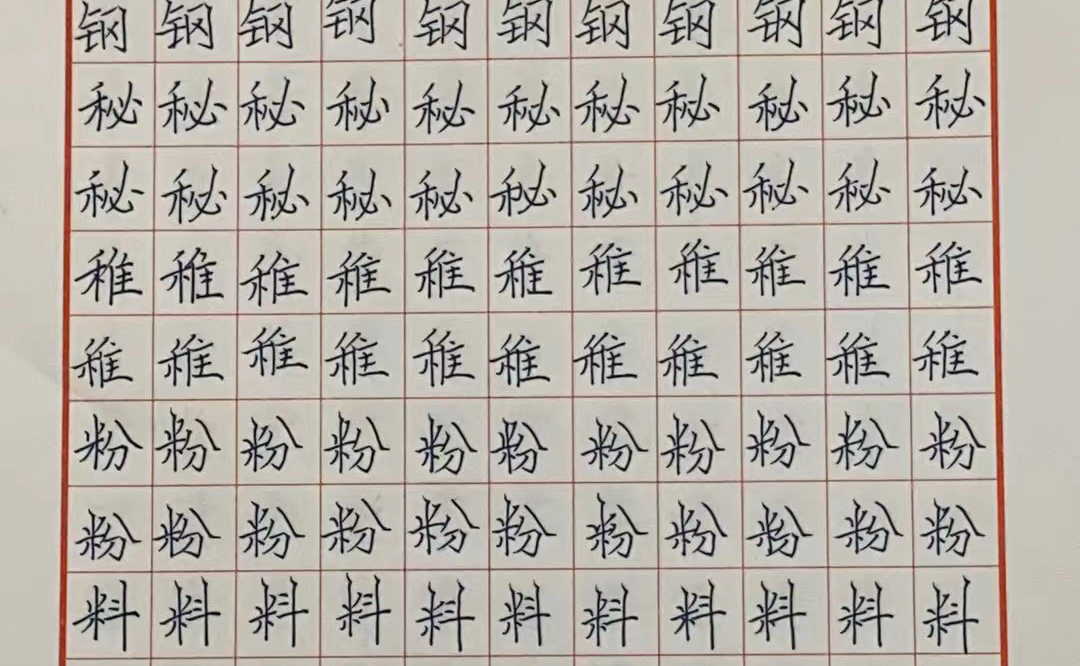 钢钢钢钢钢钢钢钢钢钢钢
秘秘秘秘秘秘秘秘秘秘秘
秘秘秘秘秘秘秘秘秘秘秘
稚稚稚稚稚稚稚稚稚稚稚
稚稚稚稚稚稚稚稚稚稚稚
粉粉粉粉粉粉粉粉粉粉粉
粉粉粉粉粉粉粉粉粉粉粉
料料料料料料料料料料料